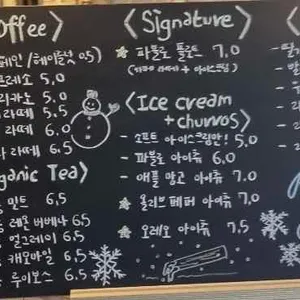 offee>
페인/헤이즐넛 0.5)
프레소 5.0
리카노 5.0
라떼 5.5
라떼 6.0
라떼 6.5
ganic Tea>
민트 6.5
레몬 버베나 6.5
얼그레이 6.5
캐모마일 6.5
루이보스 6.5
<Signature>
* 파블로 플로트 7.0
아이스크림)
<Ice cream
+churros>
- 소프트 아이스크림만! 5.0
- 파블로 아이츄 6.0
- 애플 망고 아이츄 7.0
* 올리브 페퍼 아이츄 7.0
* 오레오 아이츄 7.5